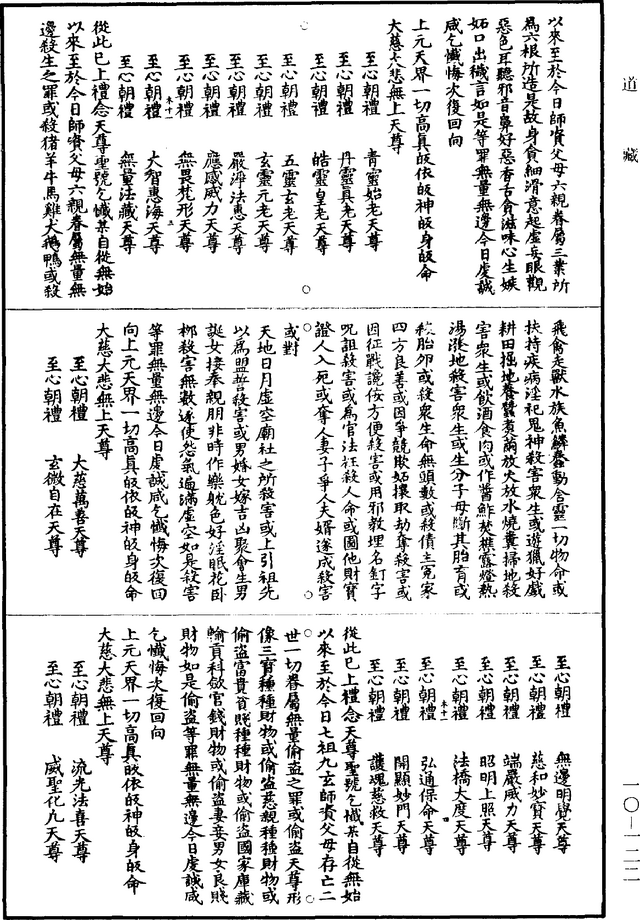 道藏
以來至於今日師資父母六親眷屬三業所
為六根所造是故身貪細滑意起虛妄眼觀
惡色耳聽邪音鼻好惡香舌貪滋味心生嫉
妬口出穢言如是等罪無量無邊今日虔誠
咸乞懺悔次復回向
上元天界一切高真皈依皈神皈身皈命
大慈大悲無上天尊
至心朝禮　青靈始老天尊
至心朝禮　丹靈真老天尊
至心朝禮　皓靈皇老天尊
至心朝禮　五靈玄老天尊
至心朝禮　玄靈元老天尊
至心朝禮　嚴淨法惠天尊
至心朝禮　應感威力天尊
至心朝禮　無畏梵形天尊
至心朝禮　大智惠海天尊
至心朝禮　無量法藏天尊
從此已上禮念天尊聖號乞懺某自從無始
以來至於今日師資父母六親眷屬無量無
邊殺生之罪或殺猪羊牛馬雞犬鵝鴨或殺
飛禽走獸水族魚鱗蠢動含靈一切物命或
扶持疾病淫祀鬼神殺害衆生或遊獵好戲
耕田掘地養蠶煑繭放火放水燒糞掃地殺
害衆生或飲酒食肉或作醬鮓焚樵露燈熱
湯潑地殺害衆生或生分子母斷其胎育或
殺胎卵或殺衆生命無頭數或殺債主冤家
四方良善或因爭競欺妬攘取劫奪殺害或
因征戰讒佞方便殺害或用邪教埋名釘字
呪詛殺害或為官法枉殺人命或圖他財寶
證人入死或奪人妻子爭人夫婿遂成殺害
或對
天地日月虛空廟社之所殺害或上引祖先
以為盟誓殺害或男婚女嫁吉凶聚會生男
誕女接奉親朋非時作樂躭色好淫眠花卧
柳殺害無數遂使怨氣遍滿虛空如是殺害
等罪無量無邊今日虔誠咸乞懺悔次復回
向上元天界一切高真皈依皈神皈身皈命
大慈大悲無上天尊
至心朝禮　大慈萬喜天尊
至心朝禮　玄微自在天尊
至心朝禮　無邊明覺天尊
至心朝禮　慈和妙寶天尊
至心朝禮　端嚴威力天尊
至心朝禮　昭明上照天尊
至心朝禮　法橋大度天尊
至心朝禮　弘通保命天尊
至心朝禮　開顯妙門天尊
至心朝禮　護魂慈救天尊
從此已上禮念天尊聖號乞懺某自從無始
以來至於今日七祖九玄師資父母存亡二
世一切眷屬無量偷盗之罪或偷盗天尊形
像三寶種種財物或偷盗慈親種種財物或
偷盗富貴貧賤種種財物或偷盗國家庫藏
輸貢科斂官錢財物或偷盗妻妾男女良賤
財物如是偷盗等罪無量無邊今日虔誠咸
乞懺悔次復回向
上元天界一切高真皈依皈神皈身皈命
大慈大悲無上天尊
至心朝禮　流光法喜天尊
至心朝禮　威聖化凡天尊
一〇—一二二